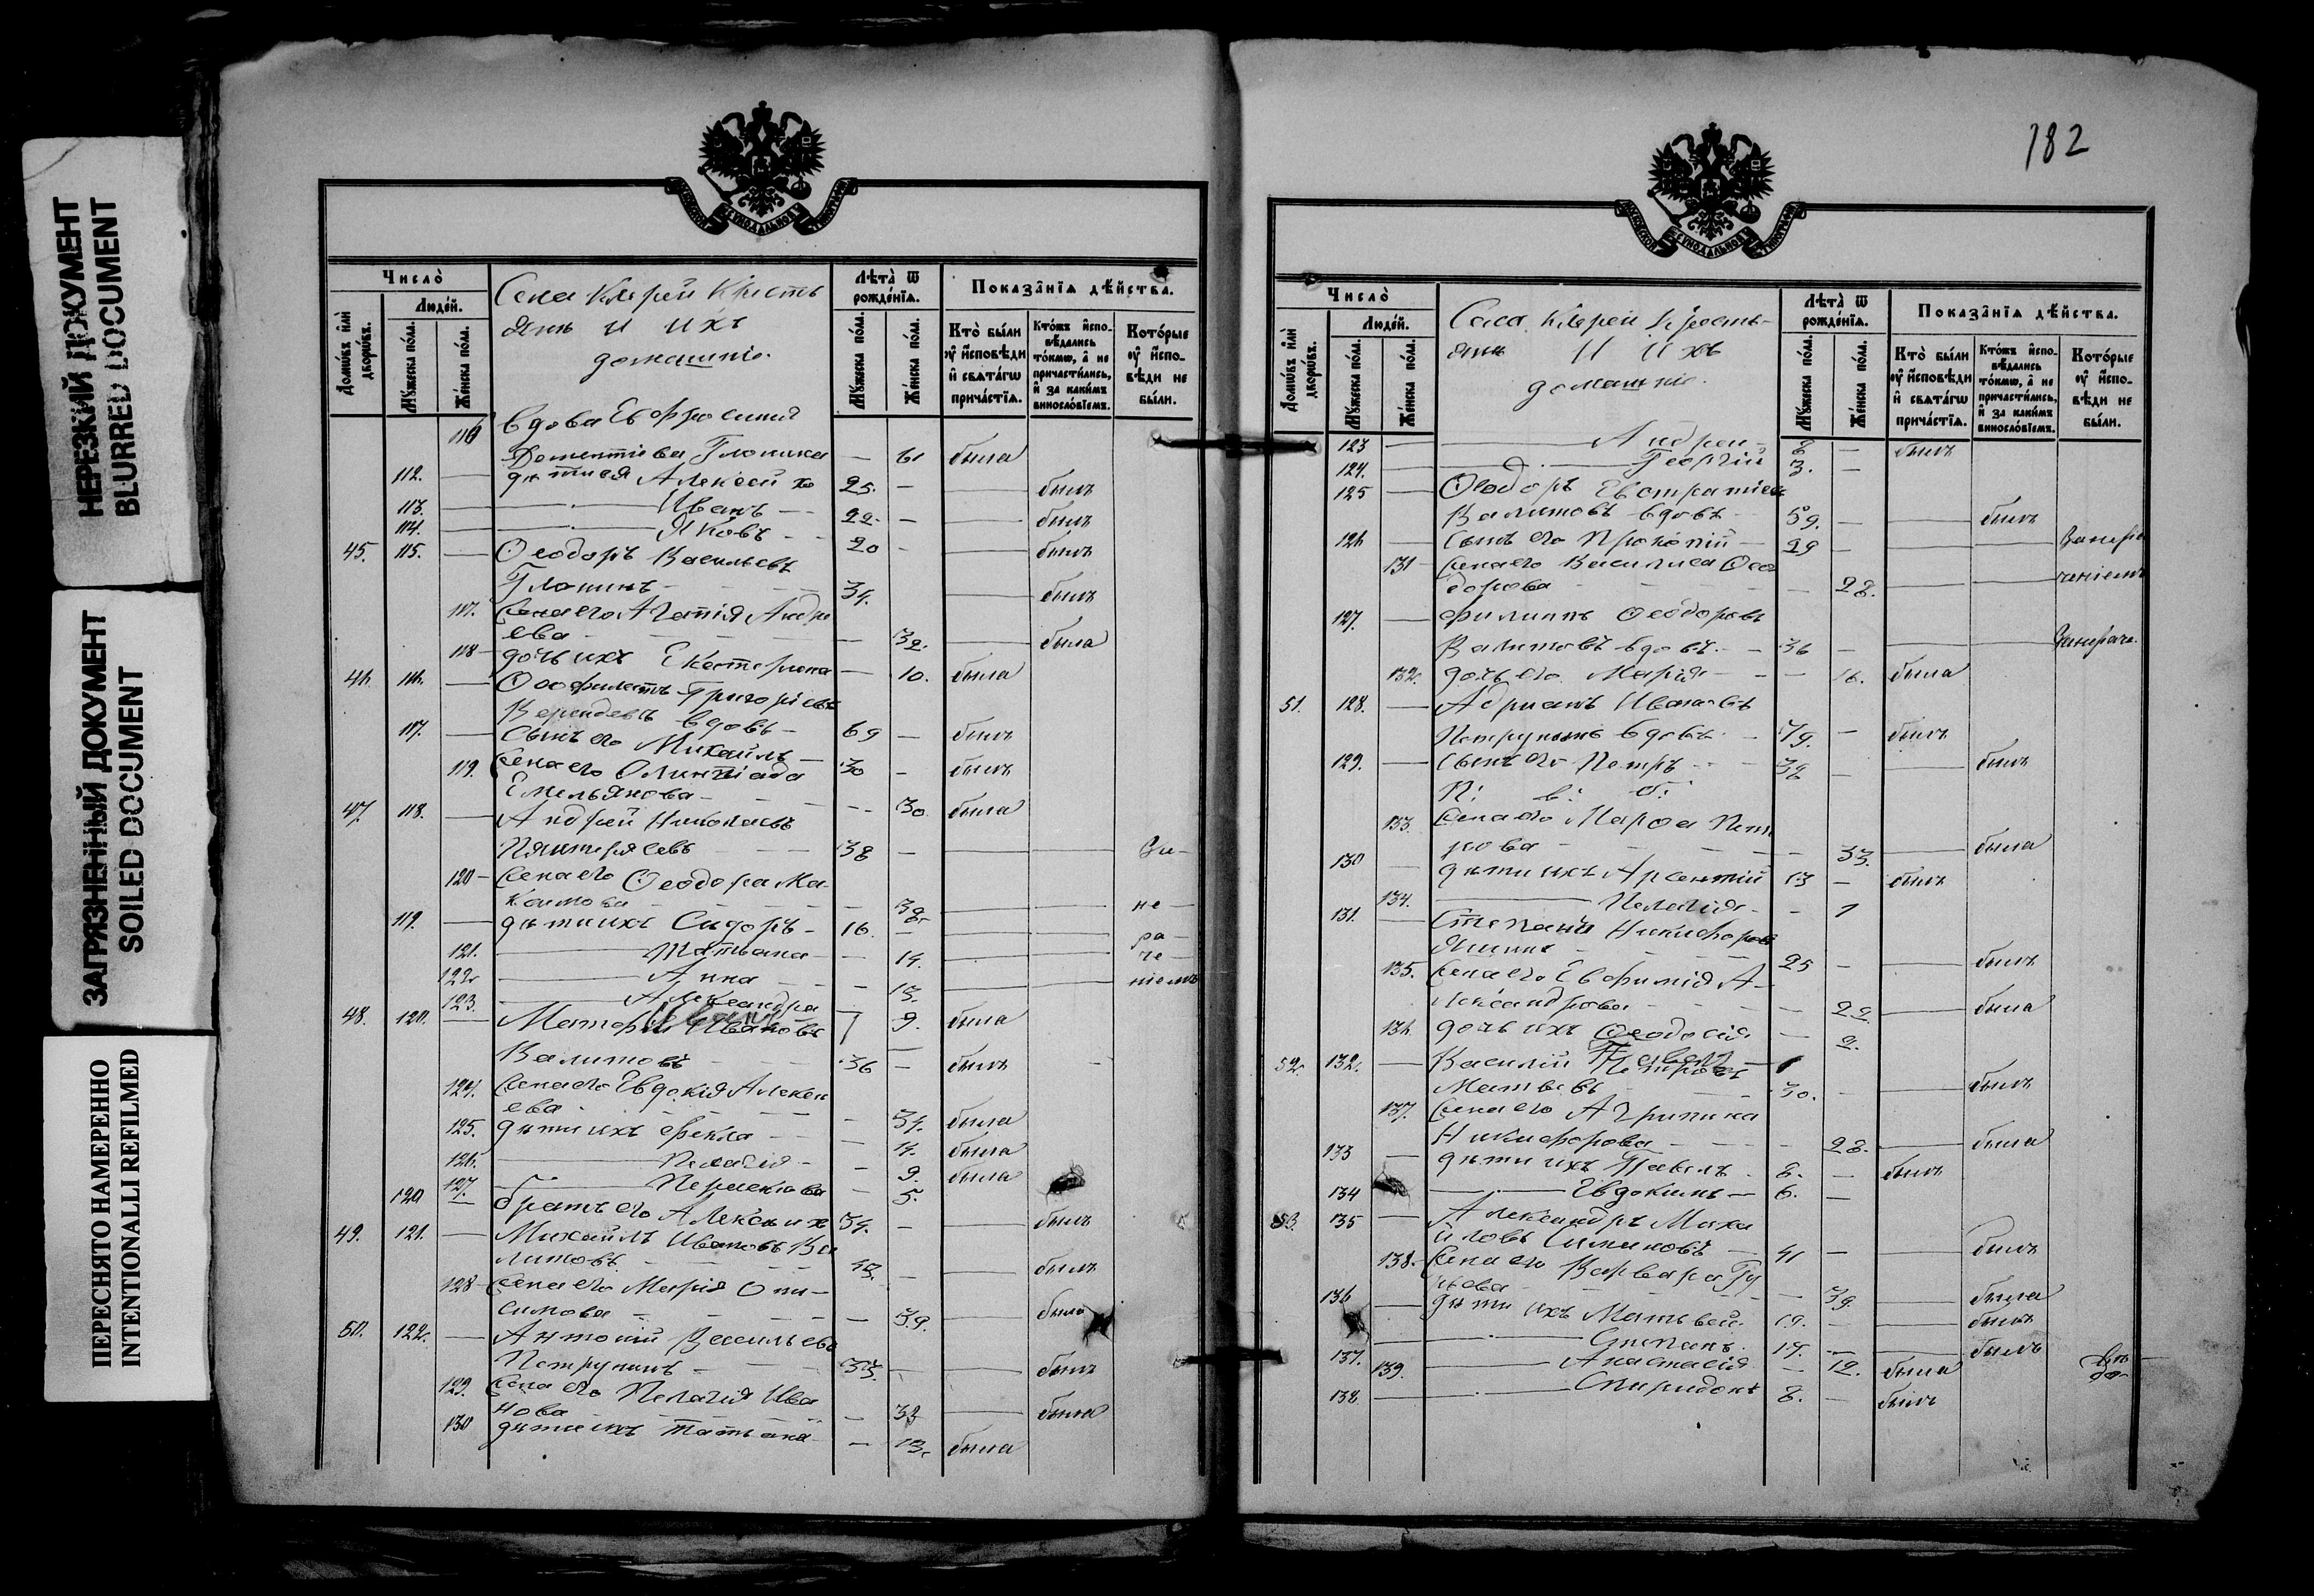 НЕРЕЗКИЙ ДОКУМЕНТ
BLURRED DOCUMENT
ЗАГРЯЗНЕННЫЙ ДОКУМЕНТ
SOILED DOCUMENT
ПЕРЕСНЯТО НАМЕРЕННО
INTENTIONALLI REFILMED
Число̀
Людей.
Домѡвъ илѝ дворѡвъ.
Мꙋ́жеска по́ла.
Же́нска по́ла.
Села Клерей Кресть
яне и ихъ
домашніе.
Лѣта̀ ѿ рожде́нїѧ.
Мꙋ́жеска по́ла.
Же́нска по́ла.
Показа̑нїѧ дѣ́йства.
Кто̀ бы́ли ᲂу҆ и҆сповѣди и҆ свѧта́гѡ прича́стїѧ.
Кто́жъ и҆спо- вѣдались то́кмѡ, а҆ не причасти́лись, и҆ за каки́мъ винословїемъ.
Кото́рые ᲂу҆ и҆спо- вѣди не бы́ли.
116 вдова Евфросинія
Дометіева — 61 была
112. — дѣти ея Алексѣй 25. — — былъ
113. — Иванъ 22. — — былъ
114. — Яковъ 20 — — былъ
45. 115. — Ѳеодоръ Васильевъ
34. — былъ
117. Жена его Агатія Андре
ева — 32. — была
118 — дочь ихъ Екатерина — 10. была
46. 116. — Ѳеофилактъ Григорьевъ
вдовъ — 69 — былъ
117. — Сынъ его Михаилъ — 30 — былъ
119. Жена его Олимпіада
Емельянова — 30 была
47. 118. — Андрей Николаевъ
38 — — За-
120 — Жена его Ѳеодора Ма-
кимова — 38. — не —
119. — дѣти ихъ Сидоръ — 16. — ра —
121. — Татьяна — 14. — че —
122 — Анна — 13. — ніемъ
123. — Александра — 9. была
48. 120. — Иванъ 7
Иванова
Валитовъ 36 — былъ
124. Жена его Евдокія Алексѣ
ева — 34. была
125. дѣти ихъ Ѳекла — 14. была
126. — Пелагія — 9. была
127. — Параскева — 5.
120 — братъ его Алексѣй 34. — — былъ
49. 121. — Михаилъ Ивановъ Ва
литовъ — — былъ
128 — Жена его Марія Они-
симова — 39. — была
50. 122. — Антоній Васильевъ
Петрунинъ 33. — — былъ
129. Жена его Пелагія Ива
нова — 33 — была
130 дѣти ихъ Татьяна — 13. была
182
Число̀
Людей.
Домѡвъ илѝ дворѡвъ.
Мꙋ́жеска по́ла.
Же́нска по́ла.
Села Клерей Кресть-
яне и ихъ
домашніе.
Лѣта̀ ѿ рожде́нїѧ.
Мꙋ́жеска по́ла.
Же́нска по́ла.
Показа̑нїѧ дѣ́йства.
Кто̀ бы́ли ᲂу҆ и҆сповѣди и҆ свѧта́гѡ прича́стїѧ.
Кто́жъ и҆спо- вѣдались то́кмѡ, а҆ не причасти́лись, и҆ за каки́мъ винословїемъ.
Кото́рые ᲂу҆ и҆спо- вѣди не бы́ли.
123 — Андрей 8 — былъ
124. — Георгій 3. —
125 — Ѳеодоръ Евстратіевъ
Валитовъ вдовъ 59. — — былъ
126 — Сынъ его Прокопій 29 — — Занера
131 Жена его Василиса Ѳео
дорова — 28. — ченіемъ
127. — Филиппъ Ѳеодоровъ
Валитовъ вдовъ — 36 — — Занераче.
132. дочь его Марія — 16. была
51. 128. — Адріанъ Ивановъ
Петрунинъ вдовъ — 79. — былъ
129. — Сынъ его Петръ — 38 — — былъ
П: в: б:
133. Жена его Марѳа Пет
рова — 33. — была
130 — дѣти ихъ Арсентій 13 — былъ
134. — Пелагія — 1
131. — Степанъ Никифоровъ
25 — — былъ
135. Жена его Евфимія А-
лександрова — 22. — была
136 дочь ихъ Ѳеодосія — 2.
Павелъ — 1
52. 132. — Василій Петровъ
Матвевъ 30. — — былъ
137. Жена его Агрипина
Никифорова — 28. — была
133 — дѣти ихъ Павелъ 8. — былъ
134 — Евдокимъ — 6. —
53. 135 — Александръ Миха
иловъ 41 — — былъ
138. — Жена его Варвара Гу
рьева — 39. — была
136 — дѣти ихъ Матвей 19. — — былъ
137. — Степанъ 14. — — былъ
139. — Анастасія — 12. была
138. — Спиридонъ 8. — былъ